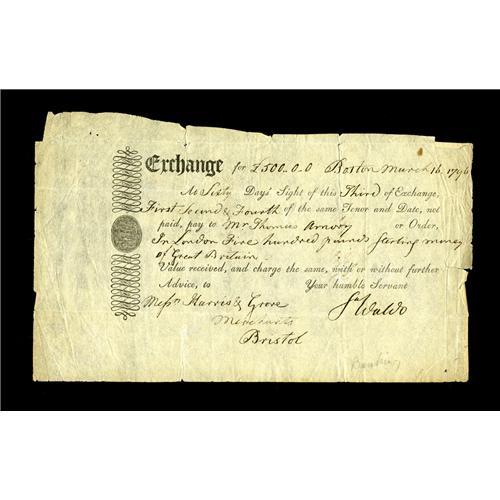 Exchange for £500..0..0 Boston March 16. 1796
At Sixty Days Sight of this Third of Exchange,
First Second & Fourth of the same Tenor and Date, not
paid, pay to Mr Thomas Amory or Order,
In London Five hundred pounds Sterling money
of Great Britain
Value received, and charge the same, with or without further
Advice, to Your humble Servant
Messrs Harris & Grove Sl Waldo
Merchants
Bristol